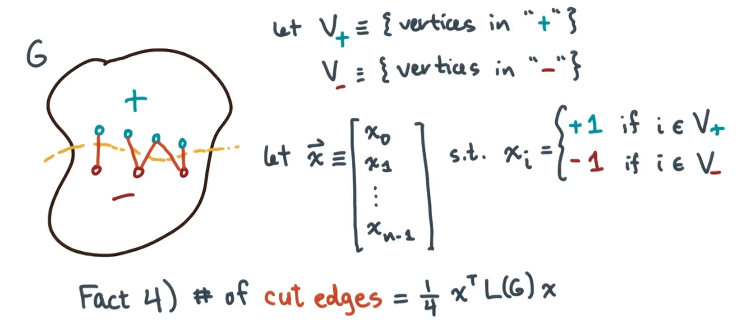 G
+
−
let V₊ ≡ { vertices in "+" }
V₋ ≡ { vertices in "−" }
let x⃗ ≡ [ x₀ x₁ ⋮ xₙ₋₁ ] s.t. xᵢ = { +1 if i ∈ V₊
-1 if i ∈ V₋
Fact 4) # of cut edges = ¼ xᵀ L(G) x